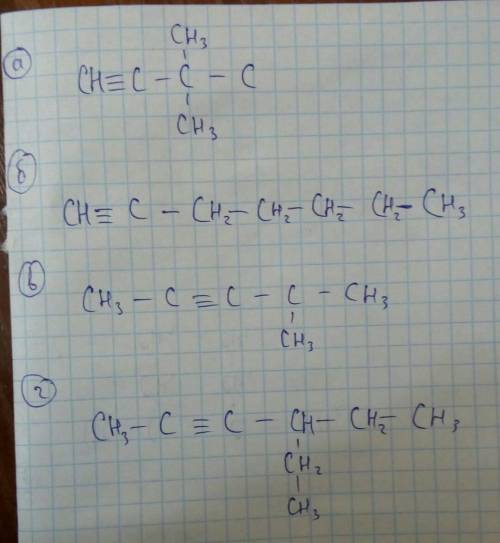 а
CH₃
CH≡C - C - C
CH₃
б
CH≡C - CH₂- CH₂- CH₂- CH₂- CH₃
в
CH₃ - C ≡ C - C - CH₃
CH₃
г
CH₃- C ≡ C - CH - CH₂- CH₃
CH₂
CH₃